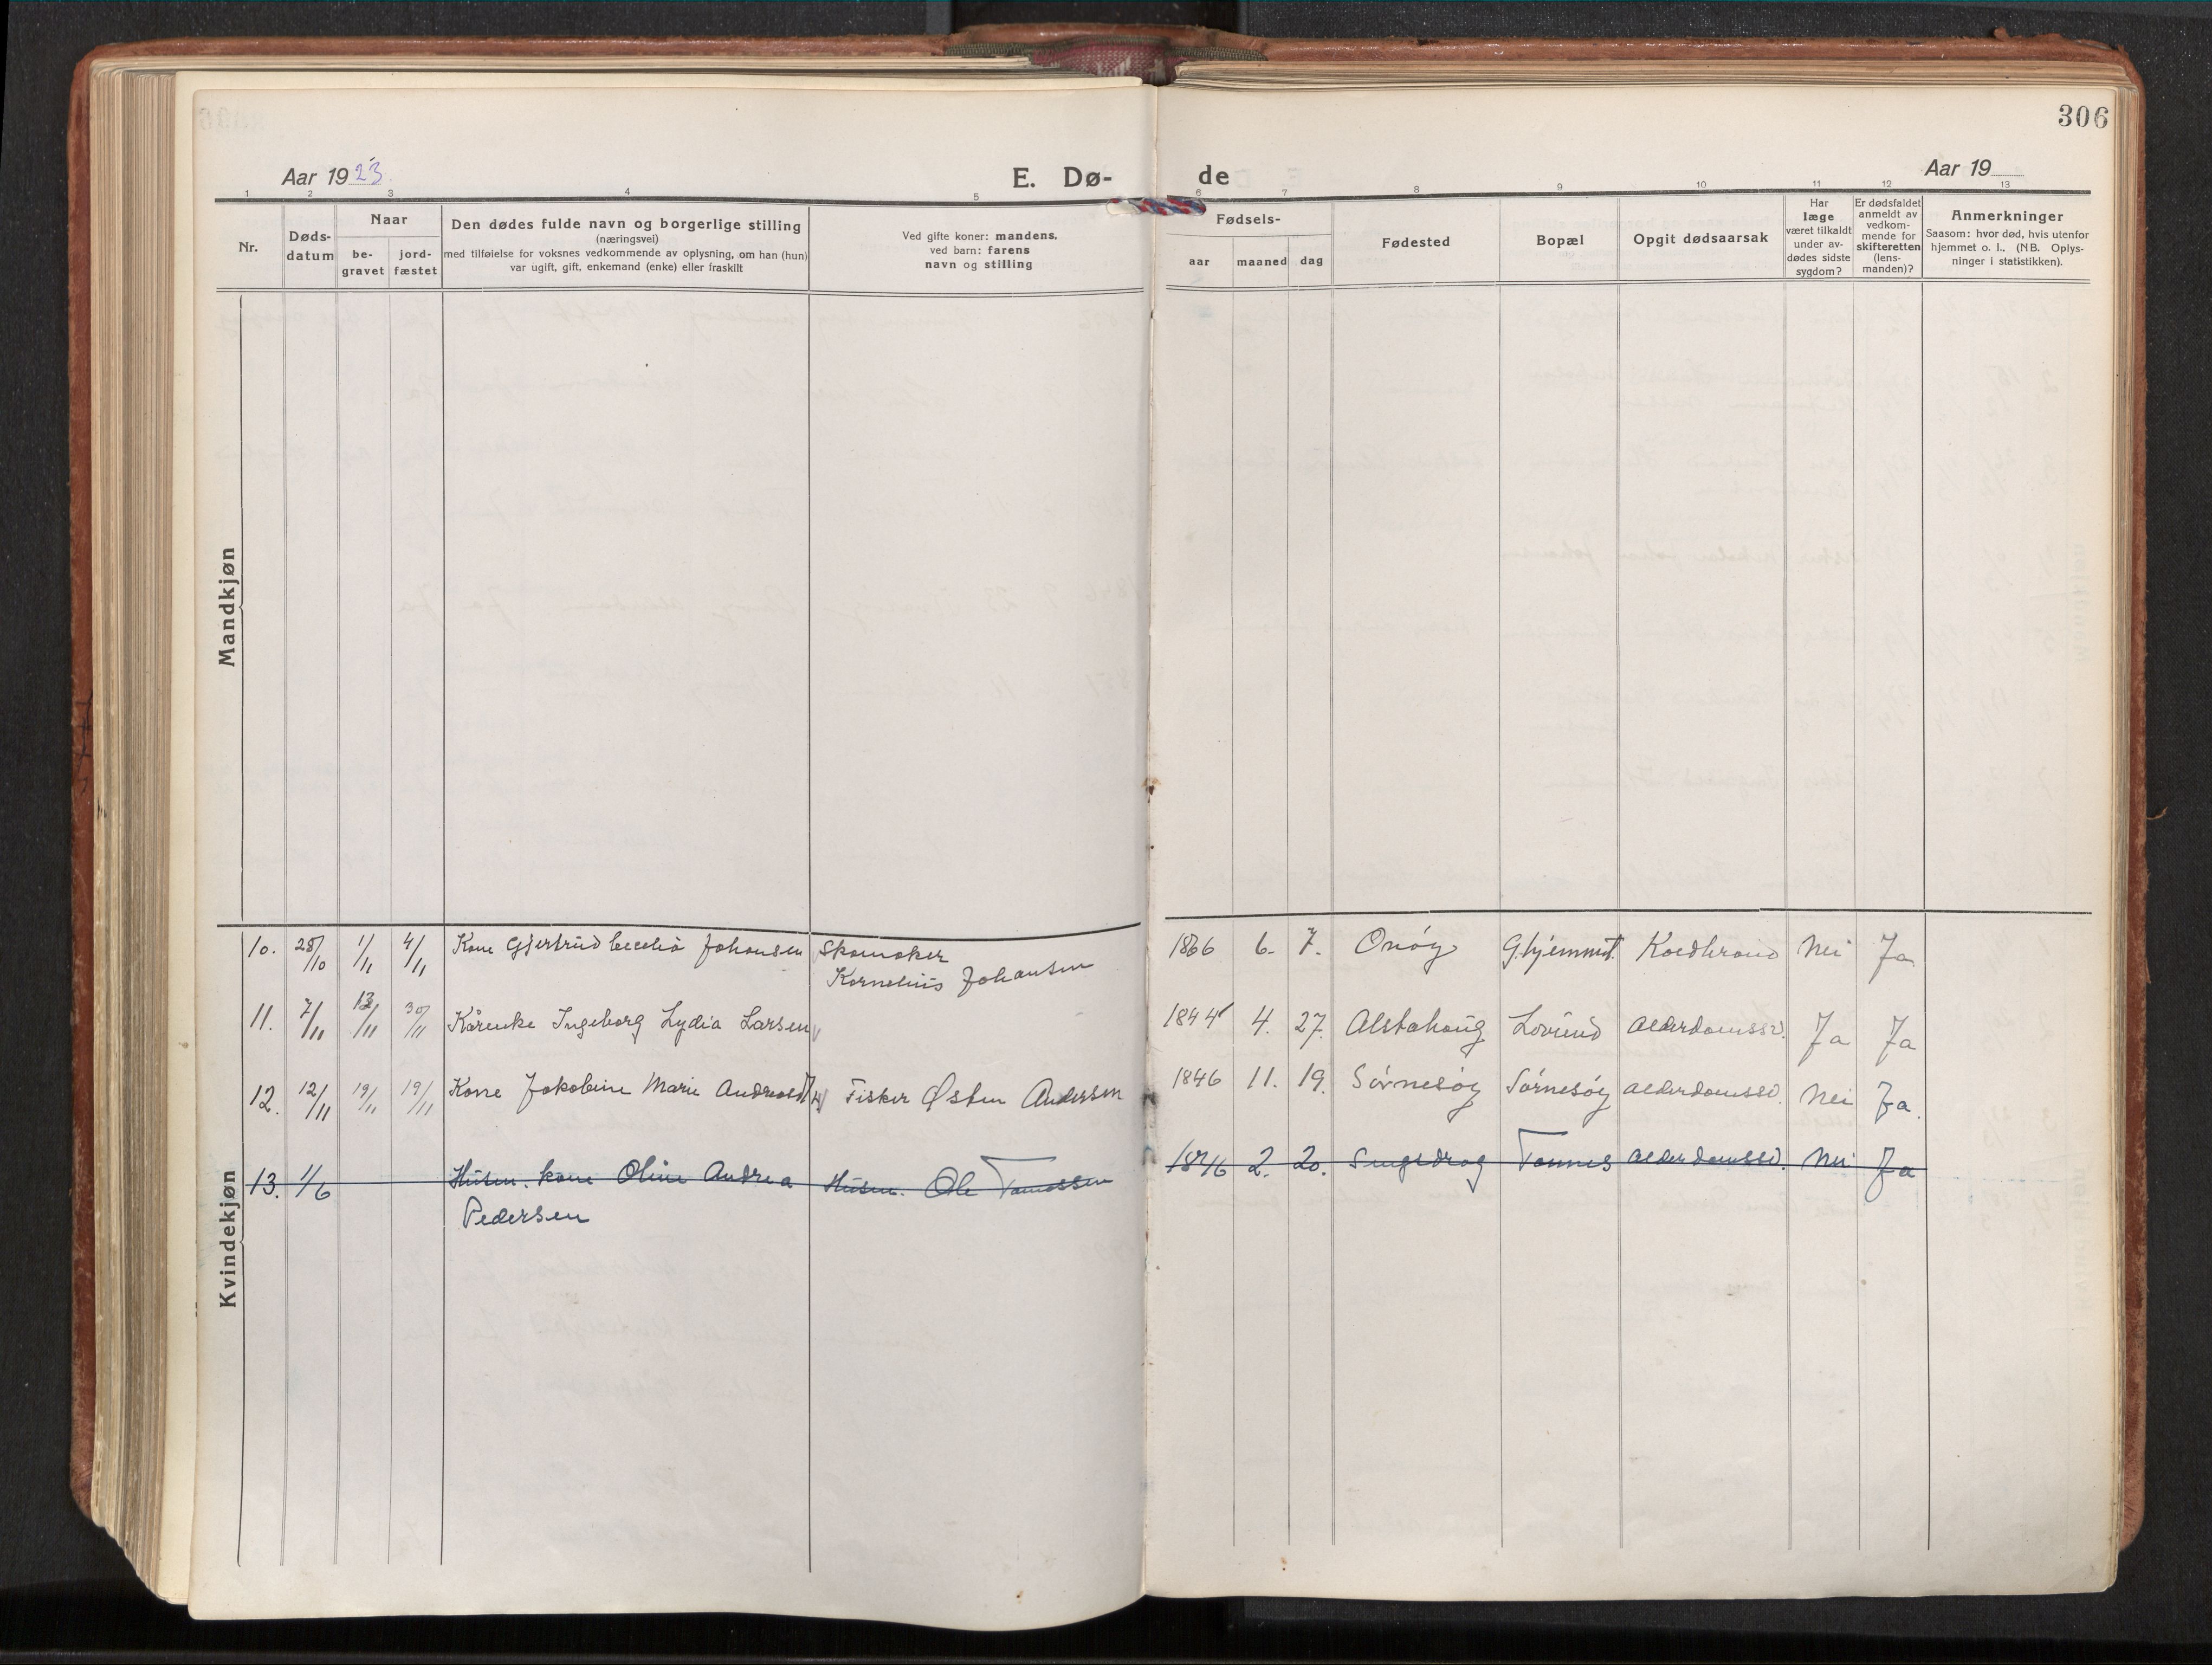 306
Aar 1923.
E. Dø-
de
Aar 19
1 2 3 4 5 6 7 8 9 10 11 12 13
Nr.
Døds-
datum
Naar
be-
gravet
jord-
fæstet
Den dødes fulde navn og borgerlige stilling
(næringsvei)
med tilføielse for voksnes vedkommende av oplysning, om han (hun)
var ugift, gift, enkemand (enke) eller fraskilt
Ved gifte koner: mandens,
ved barn: farens
navn og stilling
Fødsels-
aar
maaned
dag
Fødested
Bopæl
Opgit dødsaarsak
Har
læge
været tilkaldt
under av-
dødes sidste
sygdom?
Er dødsfaldet
anmeldt av
vedkom-
mende for
skifteretten
(lens-
manden)?
Anmerkninger
Saasom: hvor død, hvis utenfor
hjemmet o. l., (NB. Oplys-
ninger i statistikken).
Mandkjøn
Kvindekjøn
10. 28/10 1/11 4/11 Kone Gjertrud Cecelia Johansen Skomaker 1866 6. 7. Onøy Ghjemmet. Koldbrand Nei Ja
Kornelius Johansen
11. 7/11 13/11 30/11 Kårenke Ingeborg Lydia Larsen 1844 4. 27. Alstahoug Lovund Alderdomssv. Ja Ja
12. 12/11 19/11 19/11 Kone Jakobine Marie Fisker Østen Andersen 1846 11. 19. Sørnesøy Sørnesøy Alderdomssv. Nei Ja.
13. 1/6 Husm. kone Oline Andrea Husm. Ole Tomassen 1846 2. 20. Tonnes Alderdomssv. Nei Ja
Pedersen